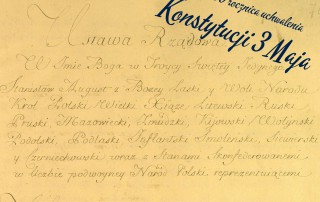 rocznica uchwalenia
Konstytucji 3 Maja
Ustawa Rządowa
W Imie Boga w Troycy Swiętey Jedynego
Stanisław August z Bożey Łaski y Woli Narodu
Krol Polski Wielki Xiąże Litewski Ruski
Pruski, Mazowiecki, Zmudzki, Kijowski Wołynski
Podolski, Podlaski Inflantski Smoleński, Siewirski
y Czerniechowski wraz z Stanami Skonfederowanemi
w liczbie podwoyney Naród Polski reprezentuiącemi